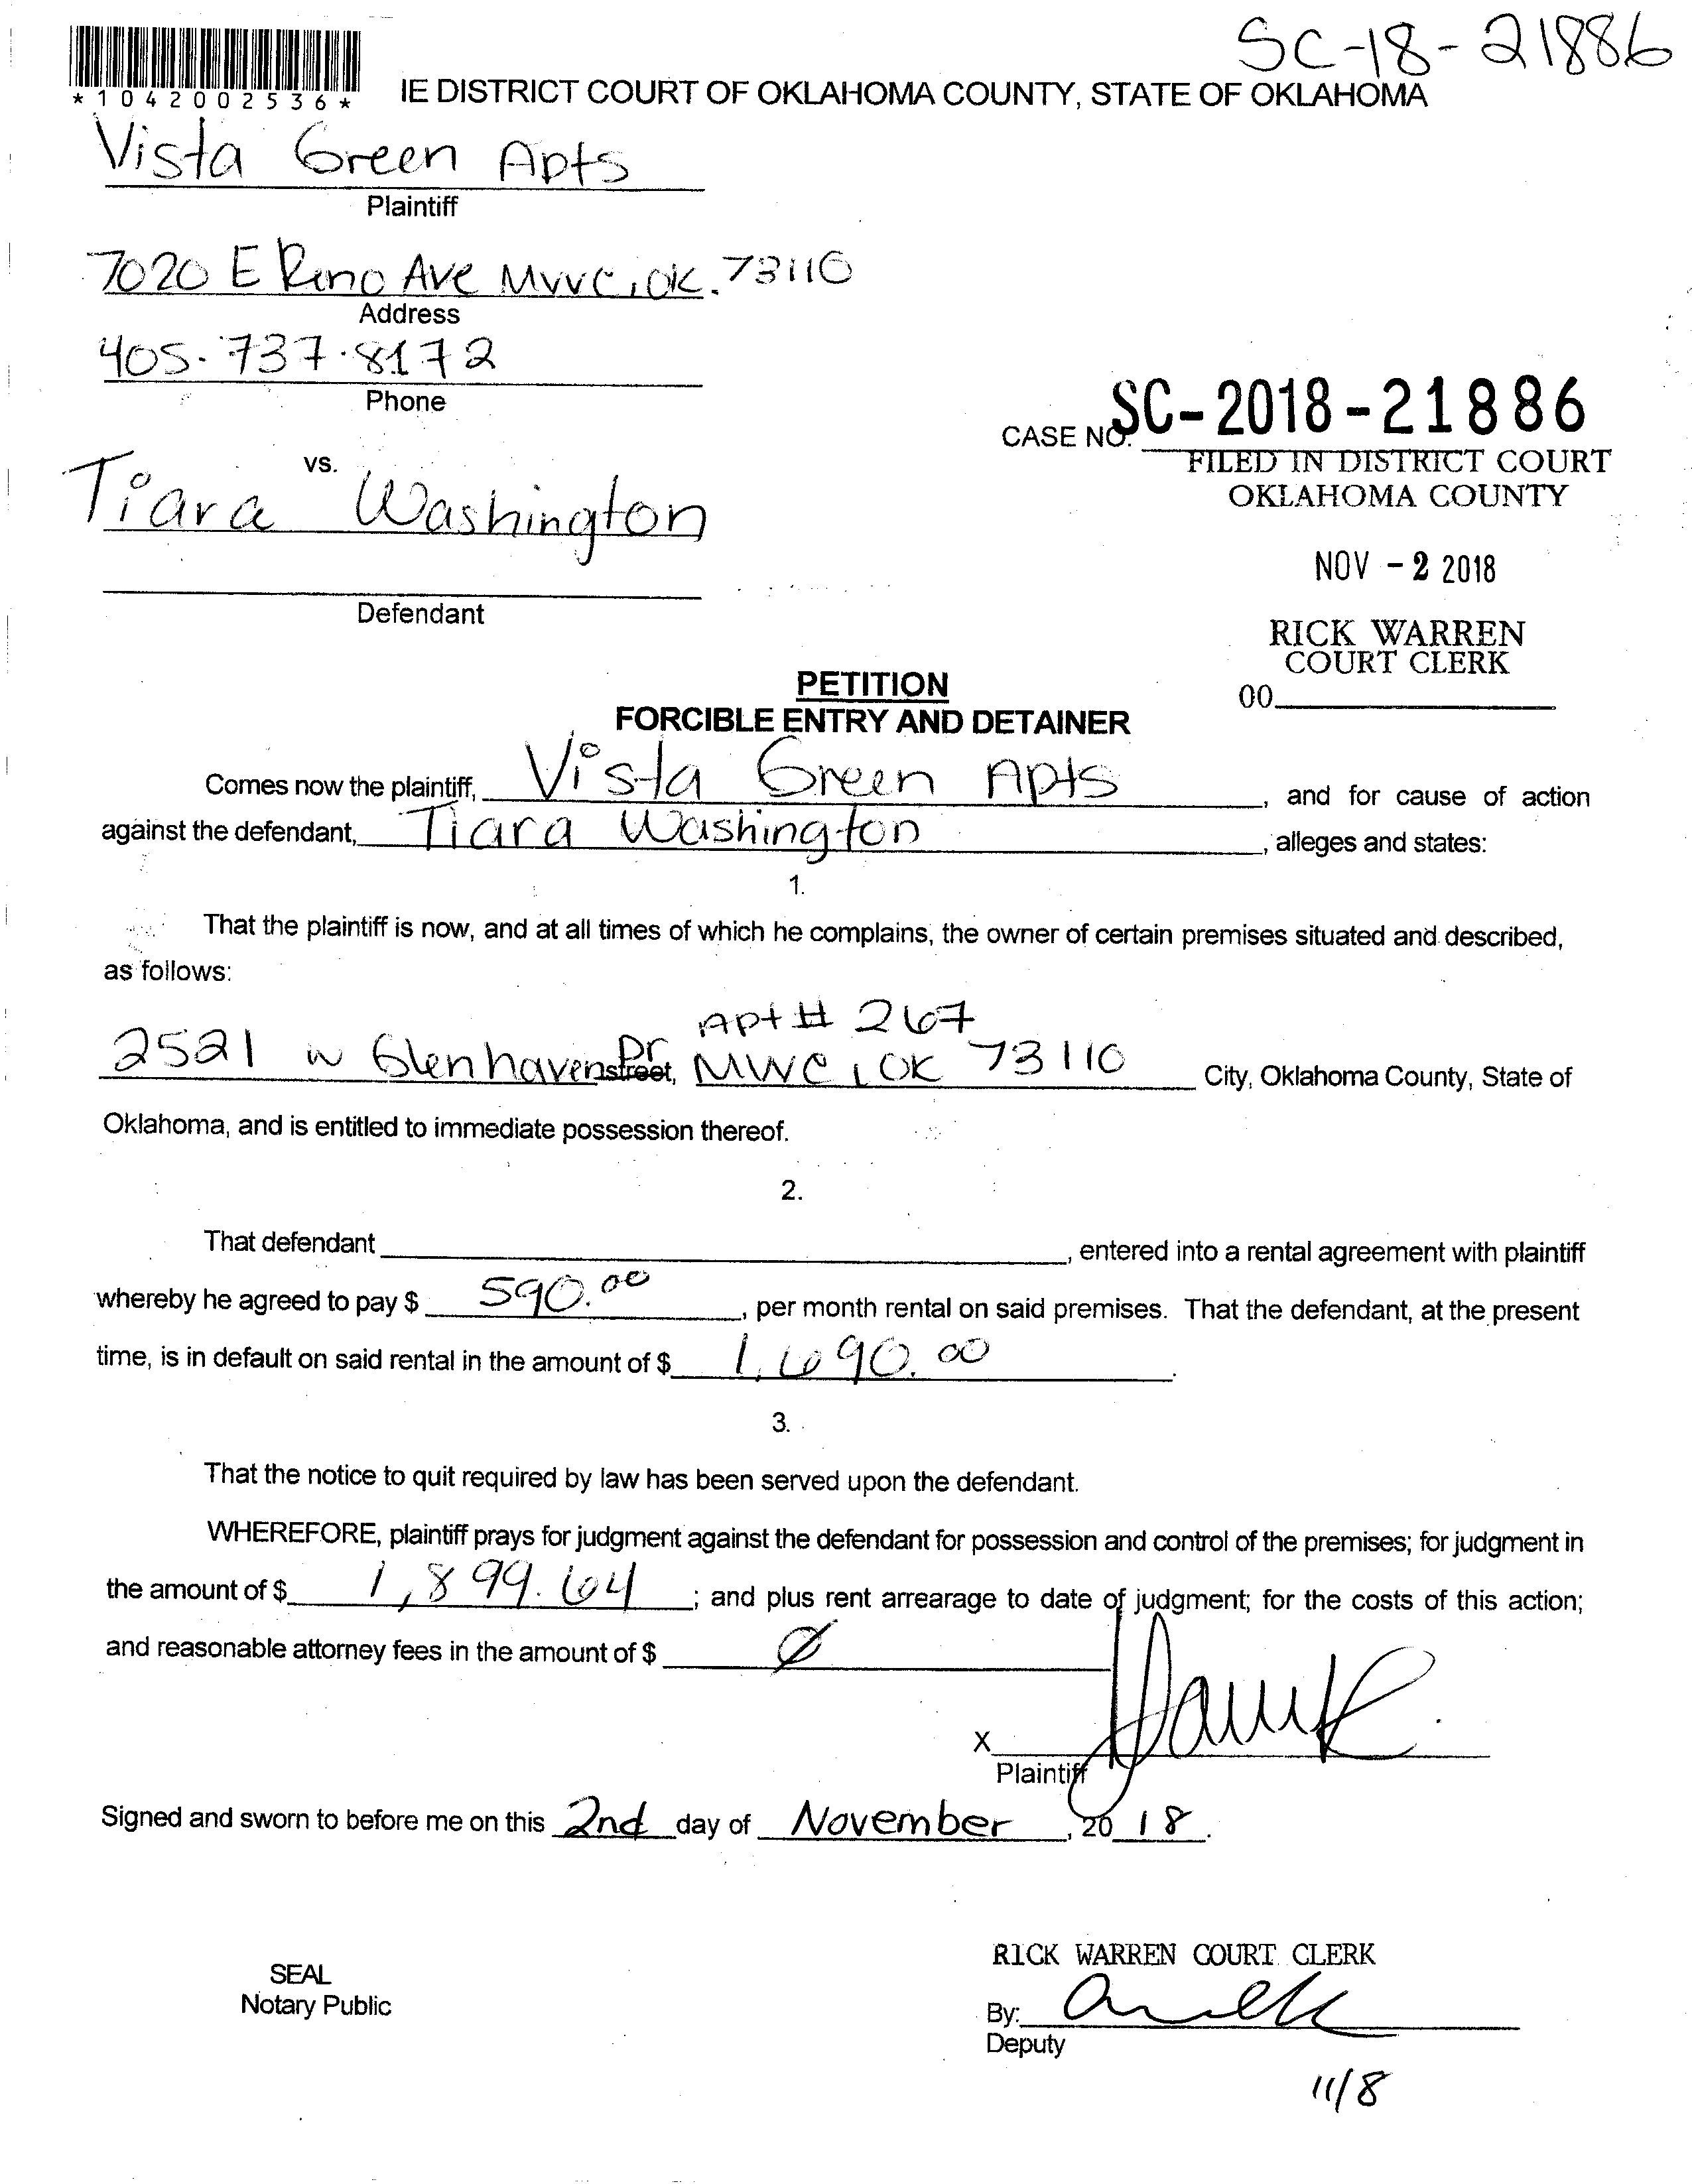 SC-18-21886
*1042002536*
IE DISTRICT COURT OF OKLAHOMA COUNTY, STATE OF OKLAHOMA
Vista Green Apts
Plaintiff
7020 E Reno Ave MWC, OK. 73110
Address
405.737.8172
Phone
CASE NO. SC-2018-21886
vs.
FILED IN DISTRICT COURT
OKLAHOMA COUNTY
Tiara Washington
NOV -2 2018
Defendant
RICK WARREN
COURT CLERK
00
PETITION
FORCIBLE ENTRY AND DETAINER
Comes now the plaintiff, Vista Green Apts, and for cause of action
against the defendant, Tiara Washington, alleges and states:
1.
That the plaintiff is now, and at all times of which he complains, the owner of certain premises situated and described,
as follows:
Apt # 267
2521 W Glenhaven Dr street, MWC, OK 73110 City, Oklahoma County, State of
Oklahoma, and is entitled to immediate possession thereof.
2.
That defendant , entered into a rental agreement with plaintiff
whereby he agreed to pay $ 590.00, per month rental on said premises. That the defendant, at the present
time, is in default on said rental in the amount of $ 1,690.00.
3.
That the notice to quit required by law has been served upon the defendant.
WHEREFORE, plaintiff prays for judgment against the defendant for possession and control of the premises; for judgment in
the amount of $ 1,899.64; and plus rent arrearage to date of judgment; for the costs of this action;
and reasonable attorney fees in the amount of $ Ø
X
Plaintiff
Signed and sworn to before me on this 2nd day of November, 20 18.
RICK WARREN COURT CLERK
SEAL
Notary Public
By:
Deputy
11/8